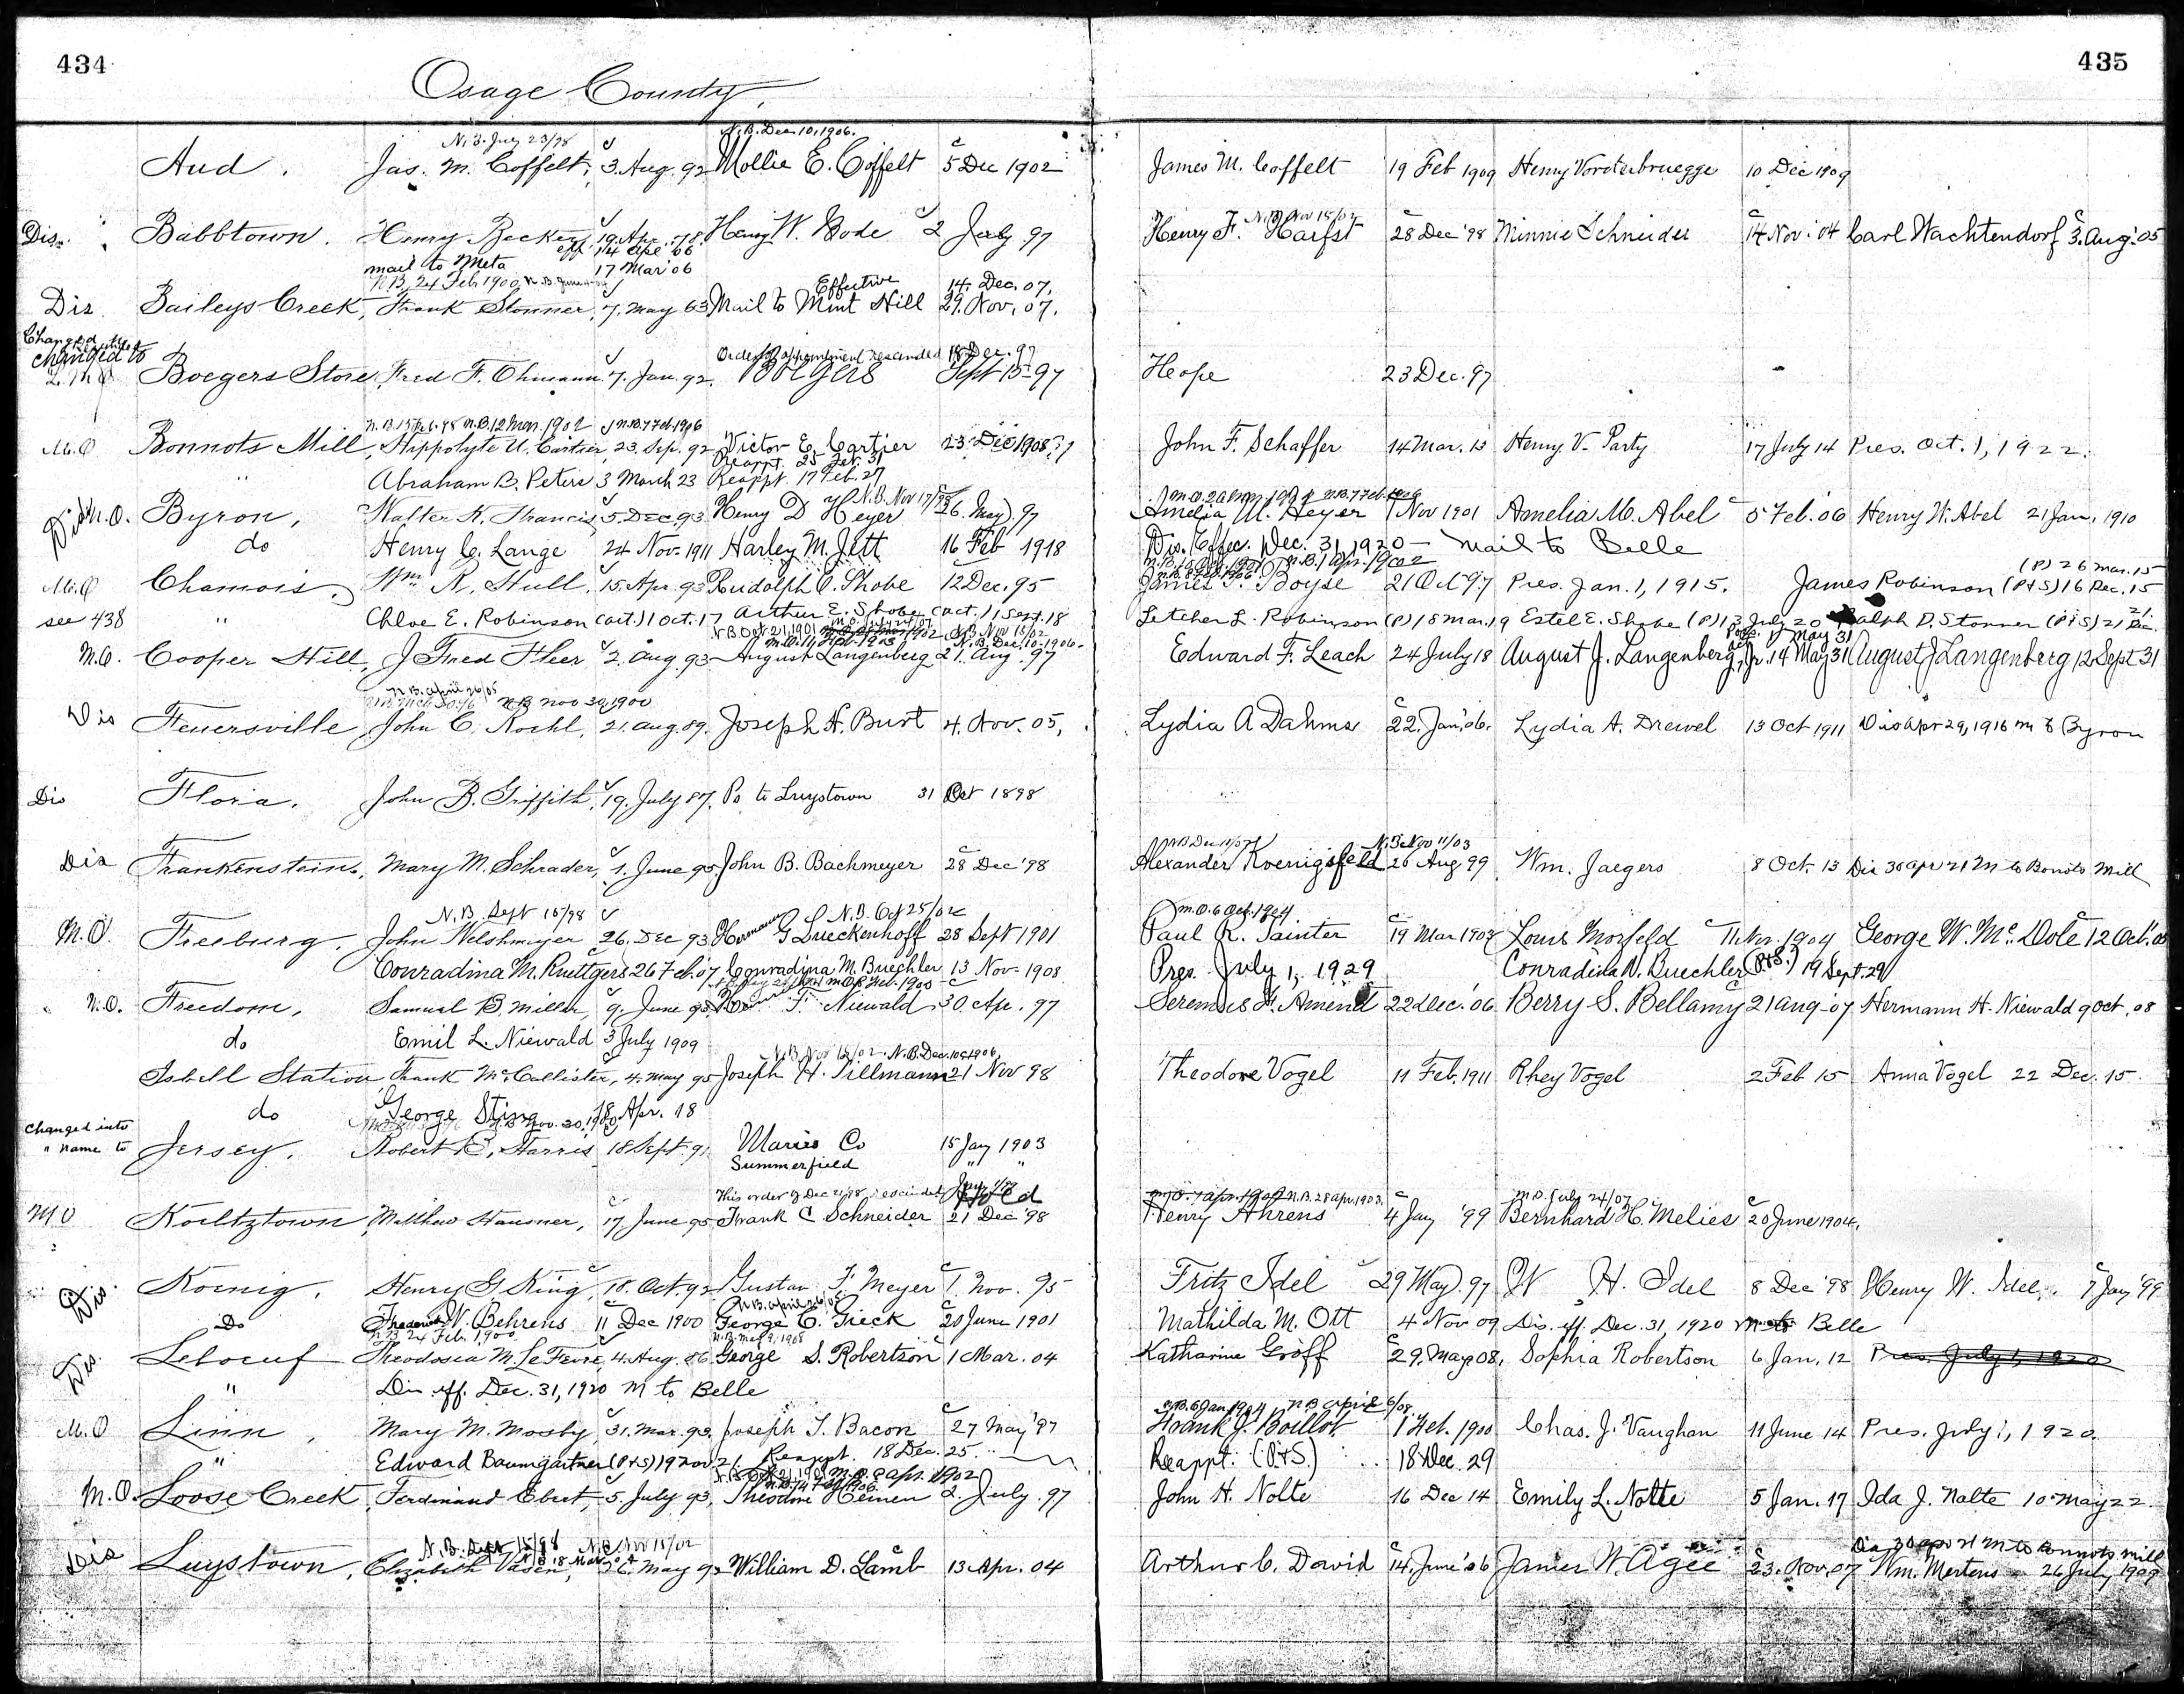 434
435
Osage County,
N.B. July 23/98 N.B. Dec. 10, 1906.
Aud. Jas. M. Coffelt, 3. Aug. 92 Mollie E. Coffelt 5 Dec 1902 James M. Coffelt 19 Feb 1909 Henry Vorsterbruegge 10 Dec 1909
N.B. Nov 15/02
Dis. Babbtown. Henry Becker, 19. Apr. 78. Henry W. Bode 2 July 97 Henry F. Harfst 28 Dec '98 Minnie Schneider 14 Nov. '04 Carl Wachtendorf 3. Aug. '05
eff. 14 Apl. 06
mail to Meta 17 Mar 06
N.B. 24 Feb. 1900, N.B. June Effective 14. Dec. 07.
Dis. Baileys Creek, Frank Stonner, 7. May 63 Mail to Mint Hill 29. Nov. 07.
Changed
changed to Order of appointment rescinded 18 Dec. 97
Boegers Store, Fred F. Ohmann. 7. Jan. 92. Boegers Sept 15-97 Hope 23 Dec. 97
N.B. 15 Feb. 98 N.B. 12 Mar. 1902 N.B. 7 Feb. 1906
M.O Bonnots Mill, Hippolyte U. Cartier, 23. Sep. 92 Victor E. Cartier 23 Dec 1908 John F. Schaffer 14 Mar. 13 Henry V. Party 17 July 14 Pres. Oct. 1, 1922.
Reappt. 25 Feb. 31
" Abraham B. Peters 3 March 23 Reappt. 17 Feb. 27
N.B. Nov 17/98 N.B. 7 Feb. 1906
Dis M.O. Byron, Walter K. Francis, 5. Dec. 93 Henry D Heyer 26. May 97 Amelia M. Heyer 1 Nov 1901 Amelia M. Abel 5 Feb. '06 Henry W. Abel 21 Jan. 1910
do Henry C. Lange 24 Nov. 1911 Harley M. Jett 16 Feb 1918 Dis. Effec. Dec. 31, 1920 — Mail to Belle
N.B. 1 Apr. 1902
(P) 26 Mar. 15
M.O Chamois, Wm. R. Hull, 15. Apr. 93 Rudolph O. Shobe 12 Dec. 95 James T. Boyse 21 Oct 97 Pres. Jan. 1, 1915. James Robinson (P&S) 16 Dec. 15
see 438 " Chloe E. Robinson (act.) 1 Oct. 17 Arthur E. Shobe (act.) 1 Sept. 18 Letcher L. Robinson (P) 18 Mar. 19 Estel E. Shobe (P) 13 July 20 Ralph D. Stonner (P&S) 21 Dec. 21.
N.B. Oct. 21, 1901 N.B. Nov 15/02
N.B. Dec. 10, 1906.
M.O. Cooper Hill, J Fred Fleer 2. Aug 93 August Langenberg 21. Aug. 97 Edward F. Leach 24 July 18 August J. Langenberg, Jr. 14 May 31 August J Langenberg 12 Sept 31
N.B. April 26/05
N.B. Nov 30, 1900
Dis Feuersville, John C. Koehl, 21. Aug. 89. Joseph H. Burt 4. Nov. 05, Lydia A Dahms 22. Jan. '06. Lydia A. Drewel 13 Oct 1911 Dis Apr 29, 1916 m to Byron
Dis Flora. John B. Griffith, 19. July 87. Po to Luystown 31 Oct 1898
N.B. Nov 11/03
Dis Frankenstein, Mary M. Schrader, 1. June 95. John B. Bachmeyer 28 Dec '98 Alexander Koenigsfeld 26 Aug 99 Wm. Jaegers 8 Oct. 13 Dis 30 Apr 21 M to Bonots Mill
N.B. Sept 15/98 N.B. Oct 25/02 m.o. 6 Oct. 1904
M.O. Freeburg, John Welshmeyer 26. Dec 93 Herman G Lueckenhoff 28 Sept 1901 Paul R. Painter 19 Mar 1903 Louis Morfeld 11 1904 George W. McDole 12 Oct. '05
Conradina M. Ruettgers 26 Feb. '07 Conradina M. Buechler 13 Nov. 1908 Pres. July 1, 1929 Conradina M. Buechler (P&S.) 19 Sept. 29
M.O. Freedom, Samuel B. Miller, 9. June 93. F. Niewald 30 Apr. 97 Seremus F. Amend 22 Dec. '06 Berry S. Bellamy 21 Aug - 07 Hermann H. Niewald 9 Oct. 08
do Emil L. Niewald 3 July 1909
N.B. Nov 15/02. N.B. Dec. 10, 1906.
Isbell Station Frank McCallister, 4. May 95 Joseph H. Tillmann 21 Nov 98 Theodore Vogel 11 Feb. 1911 Rhey Vogel 2 Feb 15 Anna Vogel 22 Dec. 15.
do George Sting 18 Apr. 18
N.B. Nov. 20, 1900
changed into
" name to Jersey, Robert C. Harris 18 Sept. 91 Maries Co 15 Jan 1903
Summerfield " "
This order of Dec 21/98 rescinded N.B. 28 Apr. 1903. m.o. July 24/07
M O Koeltztown, Matthew Hausner, 17. June 95. Frank C Schneider 21 Dec '98 Henry Ahrens 4 Jan '99 Bernhard H. Melies 20 June 1904.
Dis. Koenig, Henry G King, 18. Oct. 92 Gustav F. Meyer 1. Nov. 95 Fritz Idel 29 May. 97 W H. Idel 8 Dec '98 Henry W. Idel 7 Jan '99
N.B. April 26/05
Do Frederick W. Behrens 11 Dec 1900 George C. Gieck 20 June 1901 Mathilda M. Ott 4 Nov 09 Dis. eff. Dec. 31, 1920 M to Belle
N.B. 24 Feb. 1900
Dis. Leboeuf Theodosia M. LeFevre, 4. Aug. 86 George S. Robertson 1 Mar. 04 Katharine Groff 29. May 08, Sophia Robertson 6 Jan. 12 Pres. July 1, 1920
" Dis. eff. Dec. 31, 1920 M to Belle
N.B. 6 Jan 1904 N B April 6/08.
M.O Linn, Mary M. Mosby, 31. Mar. 93. Joseph T. Bacon 27 May '97 Frank J. Boillot 1 Feb. 1900 Chas. J. Vaughan 11 June 14 Pres. July 1, 1920.
" Edward Baumgartner (P&S) 19 Nov 21. Reappt. 18 Dec. 25 Reappt. (P.&S.) 18 Dec. 29
N.B. Oct. 21, 1901 M.O. 2 Apr. 1902
M.O. Loose Creek, Ferdinand Ebert, 5. July 93, Theodore Heinen 2. July. 97 John H. Nolte 16 Dec 14 Emily L. Nolte 5 Jan. 17 Ida J. Nalte 10 May 22.
N.B. Sept 15/98 N.B. Nov 15/02 Dis 30 Apr 21 M to Bonnots mill
Dis Luystown, Elizabeth Vasen, May 92 William D. Lamb 13 Apr. 04 Arthur C. David 14. June '06 James W. Agee 23. Nov. 07 Wm. Mertens 26 July 1909